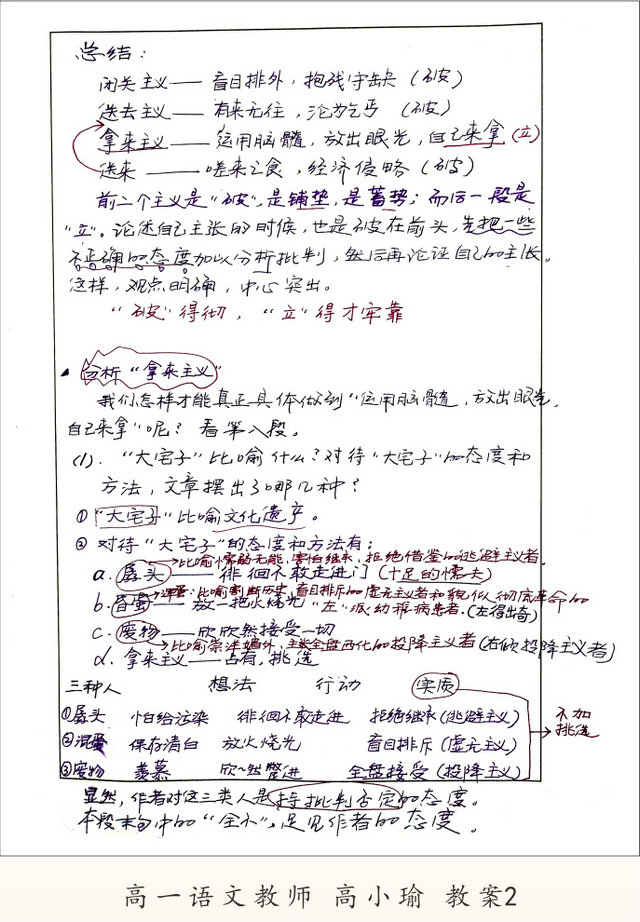 总结：
闭关主义——盲目排外，抱残守缺（破）
送去主义——有来无往，沦为乞丐（破）
拿来主义——运用脑髓，放出眼光，自己来拿（立）
送来——嗟来之食，经济侵略（破）
前二个主义是“破”，是铺垫，是蓄势；而后一段是
“立”。论述自己主张的时候，也是破在前头，先把一些
不正确的态度加以分析批判，然后再论证自己的主张。
这样，观点明确，中心突出。
“破”得彻，“立”得才牢靠
▲分析“拿来主义”
我们怎样才能真正具体做到“运用脑髓，放出眼光，
自己来拿”呢？看第八段。
(1).“大宅子”比喻什么？对待“大宅子”的态度和
方法，文章摆出了哪几种？
①“大宅子”比喻文化遗产。
②对待“大宅子”的态度和方法有：
比喻懦弱无能、害怕继承、拒绝借鉴的逃避主义者。
a.孱头——徘徊不敢走进门（十足的懦夫）
混蛋：比喻割断历史，盲目排斥的虚无主义者和貌似彻底革命的
b.昏蛋——放一把火烧光“左”派幼稚病患者.（左得出奇）
c.废物——欣欣然接受一切
比喻崇洋媚外，主张全盘西化的投降主义者（右倾投降主义者）
d.拿来主义——占有，挑选
三种人 想法 行动 实质
①孱头 怕给污染 徘徊不敢走进 拒绝继承（逃避主义）
②混蛋 保存清白 放火烧光 盲目排斥（虚无主义）
③废物 羡慕 欣~然蹩进 全盘接受（投降主义）
不加
挑选
显然，作者对这三类人是持批判否定的态度。
本段末句中的“全不”，足见作者的态度。
高一语文教师 高小瑜 教案2